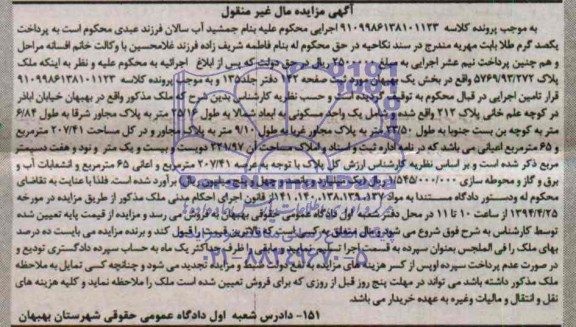 آگهی مزایده مال غیر منقول
به موجب پرونده کلاسه ۹۱۰۹۹۸۶۱۳۸۱۰۱۱۲۳ اجرایی محکوم علیه بنام جمشید آب سالان فرزند عبدی محکوم است به پرداخت
یکصد گرم طلا بابت مهریه مندرج در سند نکاحیه در حق محکوم له بنام فاطمه شریف زاده فرزند غلامحسین با وکالت خانم افسانه مراحل
و هم چنین پرداخت نیم عشر اجرایی به مبلغ ریال در حق دولت که پس از ابلاغ اجرائیه به محکوم علیه و نظر به اینکه ملک
پلاک ۵۷۶۹/۹۳/۲۷۲ واقع در بخش یک بهبهان مورد ثبت صفحه ۱۴۲ دفتر جلد ۱۳۵ و به موجب پرونده کلاسه ۹۱۰۹۹۸۶۱۳۸۱۰۱۱۲۳
قرار تامین اجرایی در قبال محکوم به توقیف گردیده است و حسب نظریه کارشناس بدین شرح که ملک مذکور واقع در بهبهان خیابان اباذر
در کوچه علم خانی پلاک ۲۱۲ واقع شده و شامل یک واحد مسکونی به ابعاد شمالا به طول متر به پلاک مجاور شرقا به طول ۶/۸۴
متر به کوچه بن بست جنوبا به طول ۲۳/۵۰ متر به پلاک مجاور غربا به طول ۹/۱۰ متر به پلاک مجاور و در کل مساحت ۲۰۷/۴۱ مترمربع
و ۶۵ مترمربع اعیانی می باشد که در نامه اداره ثبت و اسناد و املاک مساحت آن ۲۲۱/۹۷ دویست و بیست و یک متر و نود و هفت دسیمتر
مربع ذکر شده است و بر اساس نظریه کارشناس ارزش کل پلاک با توجه به عرصه ۲۰۷/۴۱ مترمربع و اعیانی ۶۵ مترمربع و انشعابات آب و
برق و گاز و محوطه سازی ۱/۵۴۵/۰۰۰/۰۰۰ ریال (یک میلیارد و پانصد و چهل و پنج میلیون ریال) برآورد شده است. فلذا با عنایت به تقاضای
محکوم له ودستور دادگاه مستندا به مواد ۱۳۷،۱۳۸،۱۳۹،۱۴۰،۱۴۱ از قانون اجرای احکام مدنی ملک مذکور از طریق مزایده در مورخه
۱۳۹۴/۴/۲۵ از ساعت ۱۰ تا ۱۱ در محل دفتر شعبه اول دادگاه عمومی حقوقی بهبهان به فروش می رسد و مزایده از قیمت پایه تعیین شده
توسط کارشناس به شرح فوق شروع می شود و مال متعلق به کسی است که بالاترین قیمت را قبول کند و برنده مزایده می بایست ده درصد
بهای ملک را فی المجلس بعنوان سپرده به قسمت اجرا تسلیم نماید و مابقی را ظرف حداکثر یک ماه به حساب سپرده دادگستری تودیع و
در صورت عدم پرداخت سپرده اویس از کسر هزینه های مزایده به نفع دولت ضبط و مزایده تجدید می شود و چنانچه کسی تمایل به ملاحظه
ملک مذکور داشته باشد می تواند در مهلت پنج روز قبل از روزی که برای فروش تعیین شده است ملک را ملاحظه نماید و کلیه هزینه های
نقل و انتقال و مالیات وغیره به عهده خریدار می باشد.
۱۵۱- دادرس شعبه اول دادگاه عمومی حقوقی شهرستان بهبهان
۰۲۱-۸۸۳۴۹۶۷۰-۵